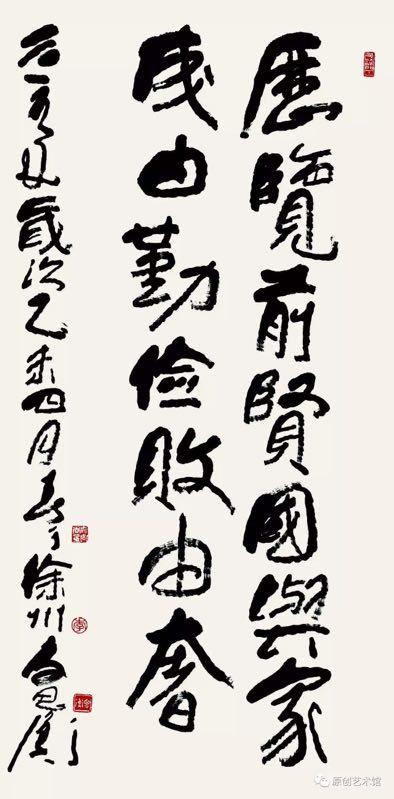 歷覽前賢國與家
成由勤儉敗由奢
歲次乙未四月书于徐州
原创艺术馆